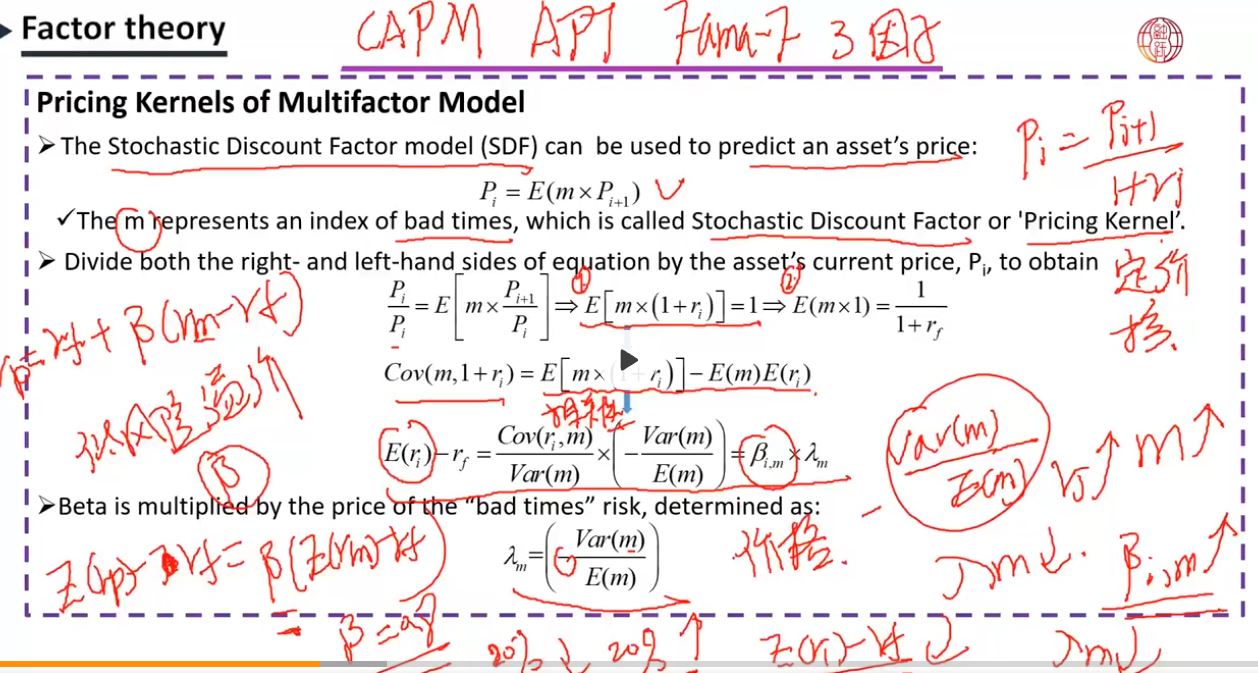 Factor theory
CAPM APT Fama-F 3因子
Pricing Kernels of Multifactor Model
➤ The Stochastic Discount Factor model (SDF) can be used to predict an asset's price:
P_i = E(m × P_{i+1})
P_i = P_{i+1} / 1+r_i
✓The m represents an index of bad times, which is called Stochastic Discount Factor or 'Pricing Kernel'.
➤ Divide both the right- and left-hand sides of equation by the asset's current price, P_i, to obtain
定价
核
① ②
P_i/P_i = E[m × P_{i+1}/P_i] ⇒ E[m×(1+r_i)] = 1 ⇒ E(m×1) = 1/(1+r_f)
r_p = r_f + β(r_m − r_f)
Cov(m,1+r_i) = E[m×(1+r_i)] − E(m)E(r_i)
相关性
风险溢价
β
E(r_i) − r_f = Cov(r_i,m)/Var(m) × (− Var(m)/E(m)) = β_{i,m} × λ_m
Var(m)/E(m) r_i↑ m↑
➤Beta is multiplied by the price of the “bad times” risk, determined as:
E(r_p) − r_f = β(E(r_m) − r_f)
λ_m = (− Var(m)/E(m))
价格.
λm↓. β_{i,m}↑
20%↓ 20%↑ E(r_i) − r_f ↓ λm↓